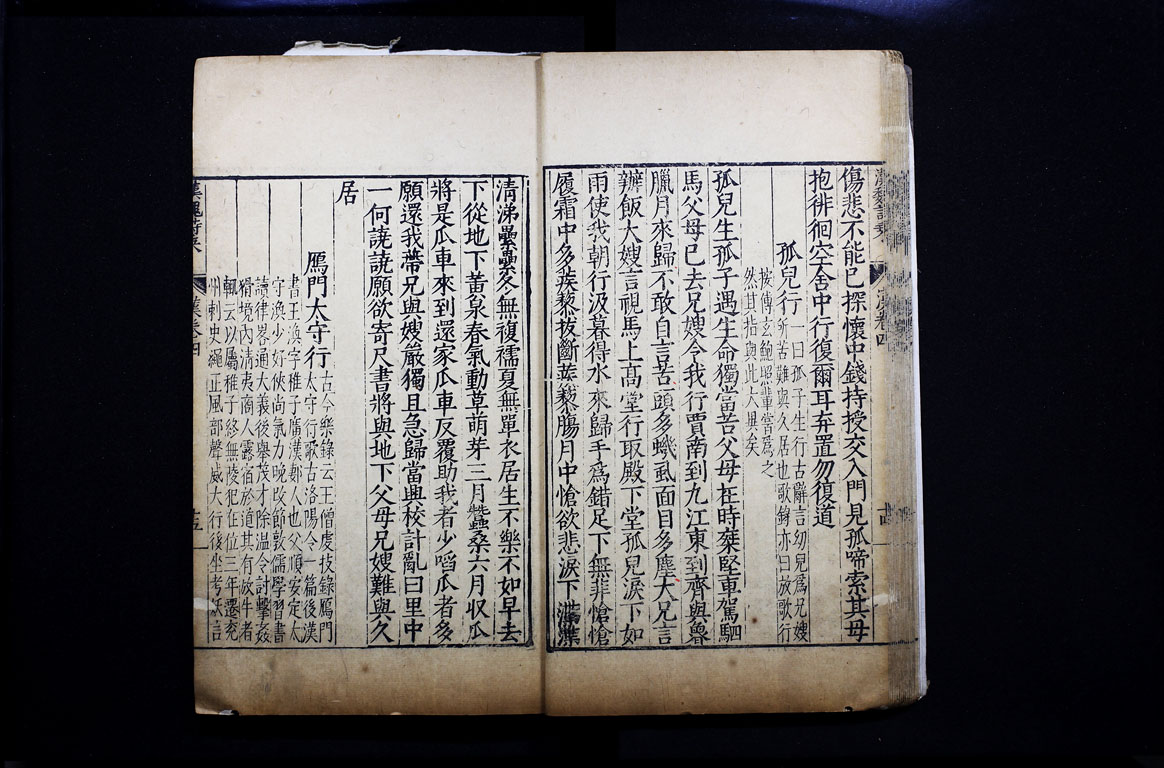 漢魏詩乘
漢卷四
傷悲不能已探懷中錢持授交入門見孤啼索其母
抱徘徊空舍中行復爾耳弃置勿復道
孤兒行
一曰孤子生行古辭言幼兒爲兄嫂
所苦難與久居也歌錄亦曰放歌行
按傅玄鮑照輩嘗爲之
然其指與此大異矣
孤兒生孤子遇生命獨當苦父母在時椉堅車駕駟
馬父母已去兄嫂令我行賈南到九江東到齊與魯
臘月來歸不敢自言苦頭多蟣虱面目多塵大兄言
辦飯大嫂言視馬上高堂行取殿下堂孤兒淚下如
雨使我朝行汲暮得水來歸手爲錯足下無菲愴愴
履霜中多蒺藜拔斷蒺藜腸月中愴欲悲淚下渫渫
清涕纍纍冬無複襦夏無單衣居生不樂不如早去
下從地下黃泉春氣動草萌芽三月蠶桑六月収瓜
將是瓜車來到還家瓜車反覆助我者少啗瓜者多
願還我蔕兄與嫂嚴獨且急歸當與校計亂曰里中
一何譊譊願欲寄尺書將與地下父母兄嫂難與久
居
鴈門太守行
古今樂錄云王僧虔技錄鴈門
太守行歌古洛陽令一篇後漢
書王渙字稚子廣漢郪人也父順安定太
守渙少好俠尚氣力晚改節敦儒學習書
讀律畧通大義後舉茂才除温令討擊姦
猾境內清夷商人露宿於道其有放牛者
輒云以屬稚子終無陵犯在位三年遷兗
州刺史繩正風部聲威大行後坐考訞言
漢魏詩乘
漢卷四